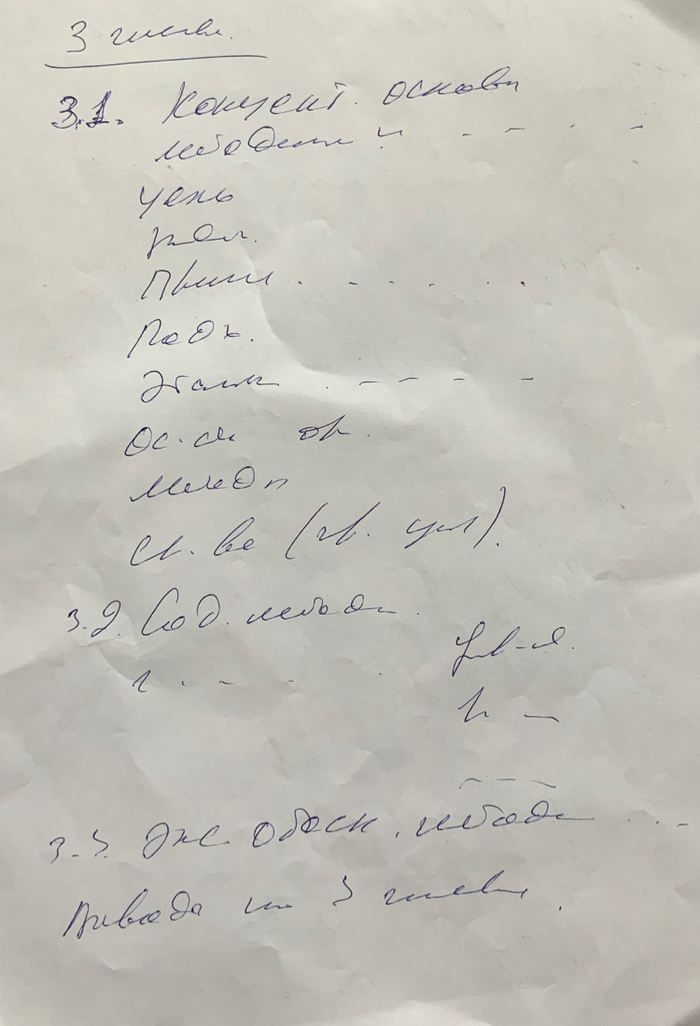 3 глава.
3.1. Концепт. основы
методики
цель
Принц
Подх.
Этапы
ос.
методы
ср.ва
3.2. Сод. методи
Упр-я.
3.3. Экс. Обосн. методи
Выводы по 3 главе.